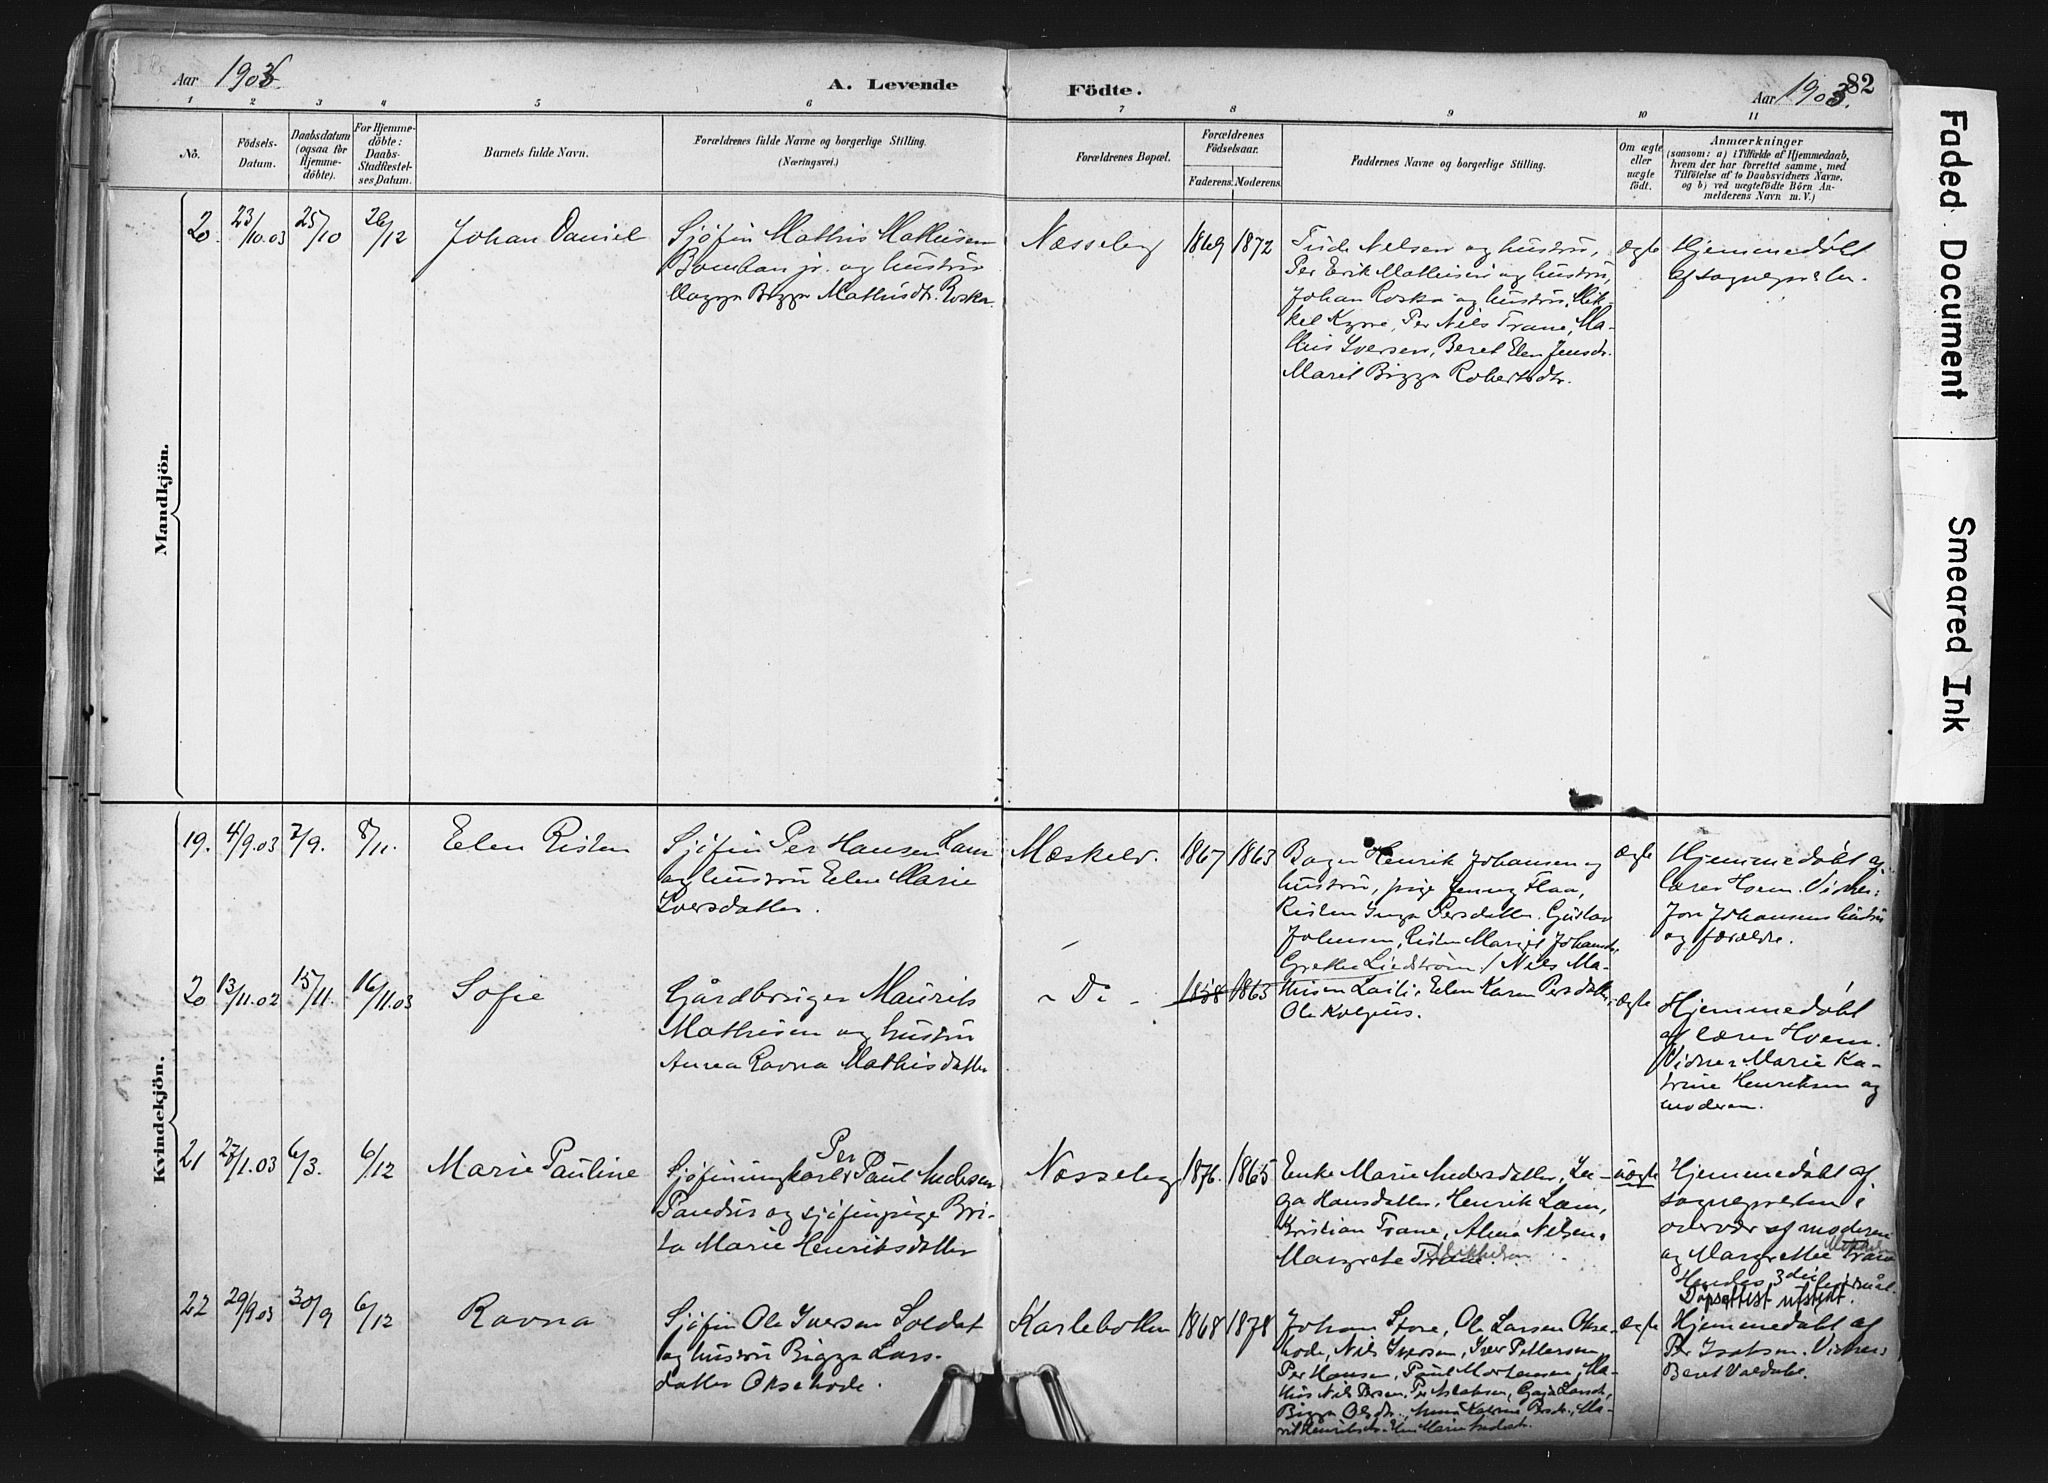 Aar 1903
A. Levende
Födte.
Aar 1903.
82
1 2 3 4 5 6 7 8 9 10 11
No.
Födsels-
Datum.
Daabsdatum
(ogsaa for
Hjemme-
döbte).
For Hjemme-
döbte:
Daabs-
Stadfæstel-
ses Datum.
Barnets fulde Navn.
Forældrenes fulde Navne og borgerlige Stilling.
(Næringsvei.)
Forældrenes Bopæl.
Forældrenes
Födselsaar.
Faderens. Moderens.
Faddernes Navne og borgerlige Stilling.
Om ægte
eller
uægte
födt.
Anmærkninger
(saasom: a) i Tilfælde af Hjemmedaab,
hvem der har forrettet samme, med
Tilföielse af to Daabsvidners Navne,
og b) ved uægtefödte Börn An-
melderens Navn m. V.)
Mandkjön.
20. 23/10.03 25/10 26/12 Johan Daniel
Sjøfin Mathis Mathisen
og hustru
Bigga Mathisdtr.
Nesseby 1869 1872
Nilsen og hustru,
Per Erik Mathisen og hustru,
Johan og hustru, Mik-
kel Per Nils Trane, Ma-
this Iversen, Beret Elen Jensdtr.
Marit Bigga Robertsdtr.
ægte
Hjemmedøbt
af sognepresten.
Kvindekjön.
19. 4/9.03 7/9. 8/11. Elen Risten
Sjøfin Per Hansen
og hustru Elen Marie
Iversdatter.
Mæskelv. 1867 1863
Henrik Johansen og
hustru, pige Jenny Flaa,
Risten Inga Persdatter. Gustav
Johnsen, Risten Margit
Grethe Liedstrøm / Nils Ma-
ægte
Hjemmedøbt af
lærer Hvem. Vidner:
Jon Johansens hustru
og forældre.
20 13/11.02 15/11. 16/11.03 Sofie
Gårdbruger Maurits
Mathisen og hustru
Anna Ravna Mathisdatter
- Do - 1858 1863
thisen Elen Karen Persdatter,
Ole
ægte
Hjemmedøbt
af lærer Hvem.
Vidner Marie Ka-
trine Henriksen og
moderen.
21 27/1.03 6/3. 6/12 Marie Pauline
Per
Sjøfinungkarl Paul Andersen
og sjøfinpige Bri-
ta Marie Henriksdatter
Nesseby 1876. 1865
Enke Marie Andersdatter,
Hansdatter, Henrik
Kristian Trane, Nilsen,
Margrete Trane. Mikkelsen
uægte
Hjemmedøbt af
sognepresten i
overvær af moderen
og Margrethe Trane
Mikkelsen
Hendes 3die leiermål.
Dåpsattest utstedt.
22 29/9.03 30/9 6/12 Ravna
Sjøfin Ole Iversen Soldat
og hustru Bigga Lars-
datter Oksehode.
Karlebotten 1868 1878
Johan Store, Ole Larsen Okse-
hode, Nils Iversen, Iver Pettersen,
Per Hansen, Paul Mortensen, Ma-
this Nils Persen, Per
Bigga Olsdtr., Anna Katrine Persdr., Ma-
rit Henriksdr.
ægte
Hjemmedøbt af
Per Isaksen. Vidner:
Beret
Faded Document
Smeared Ink